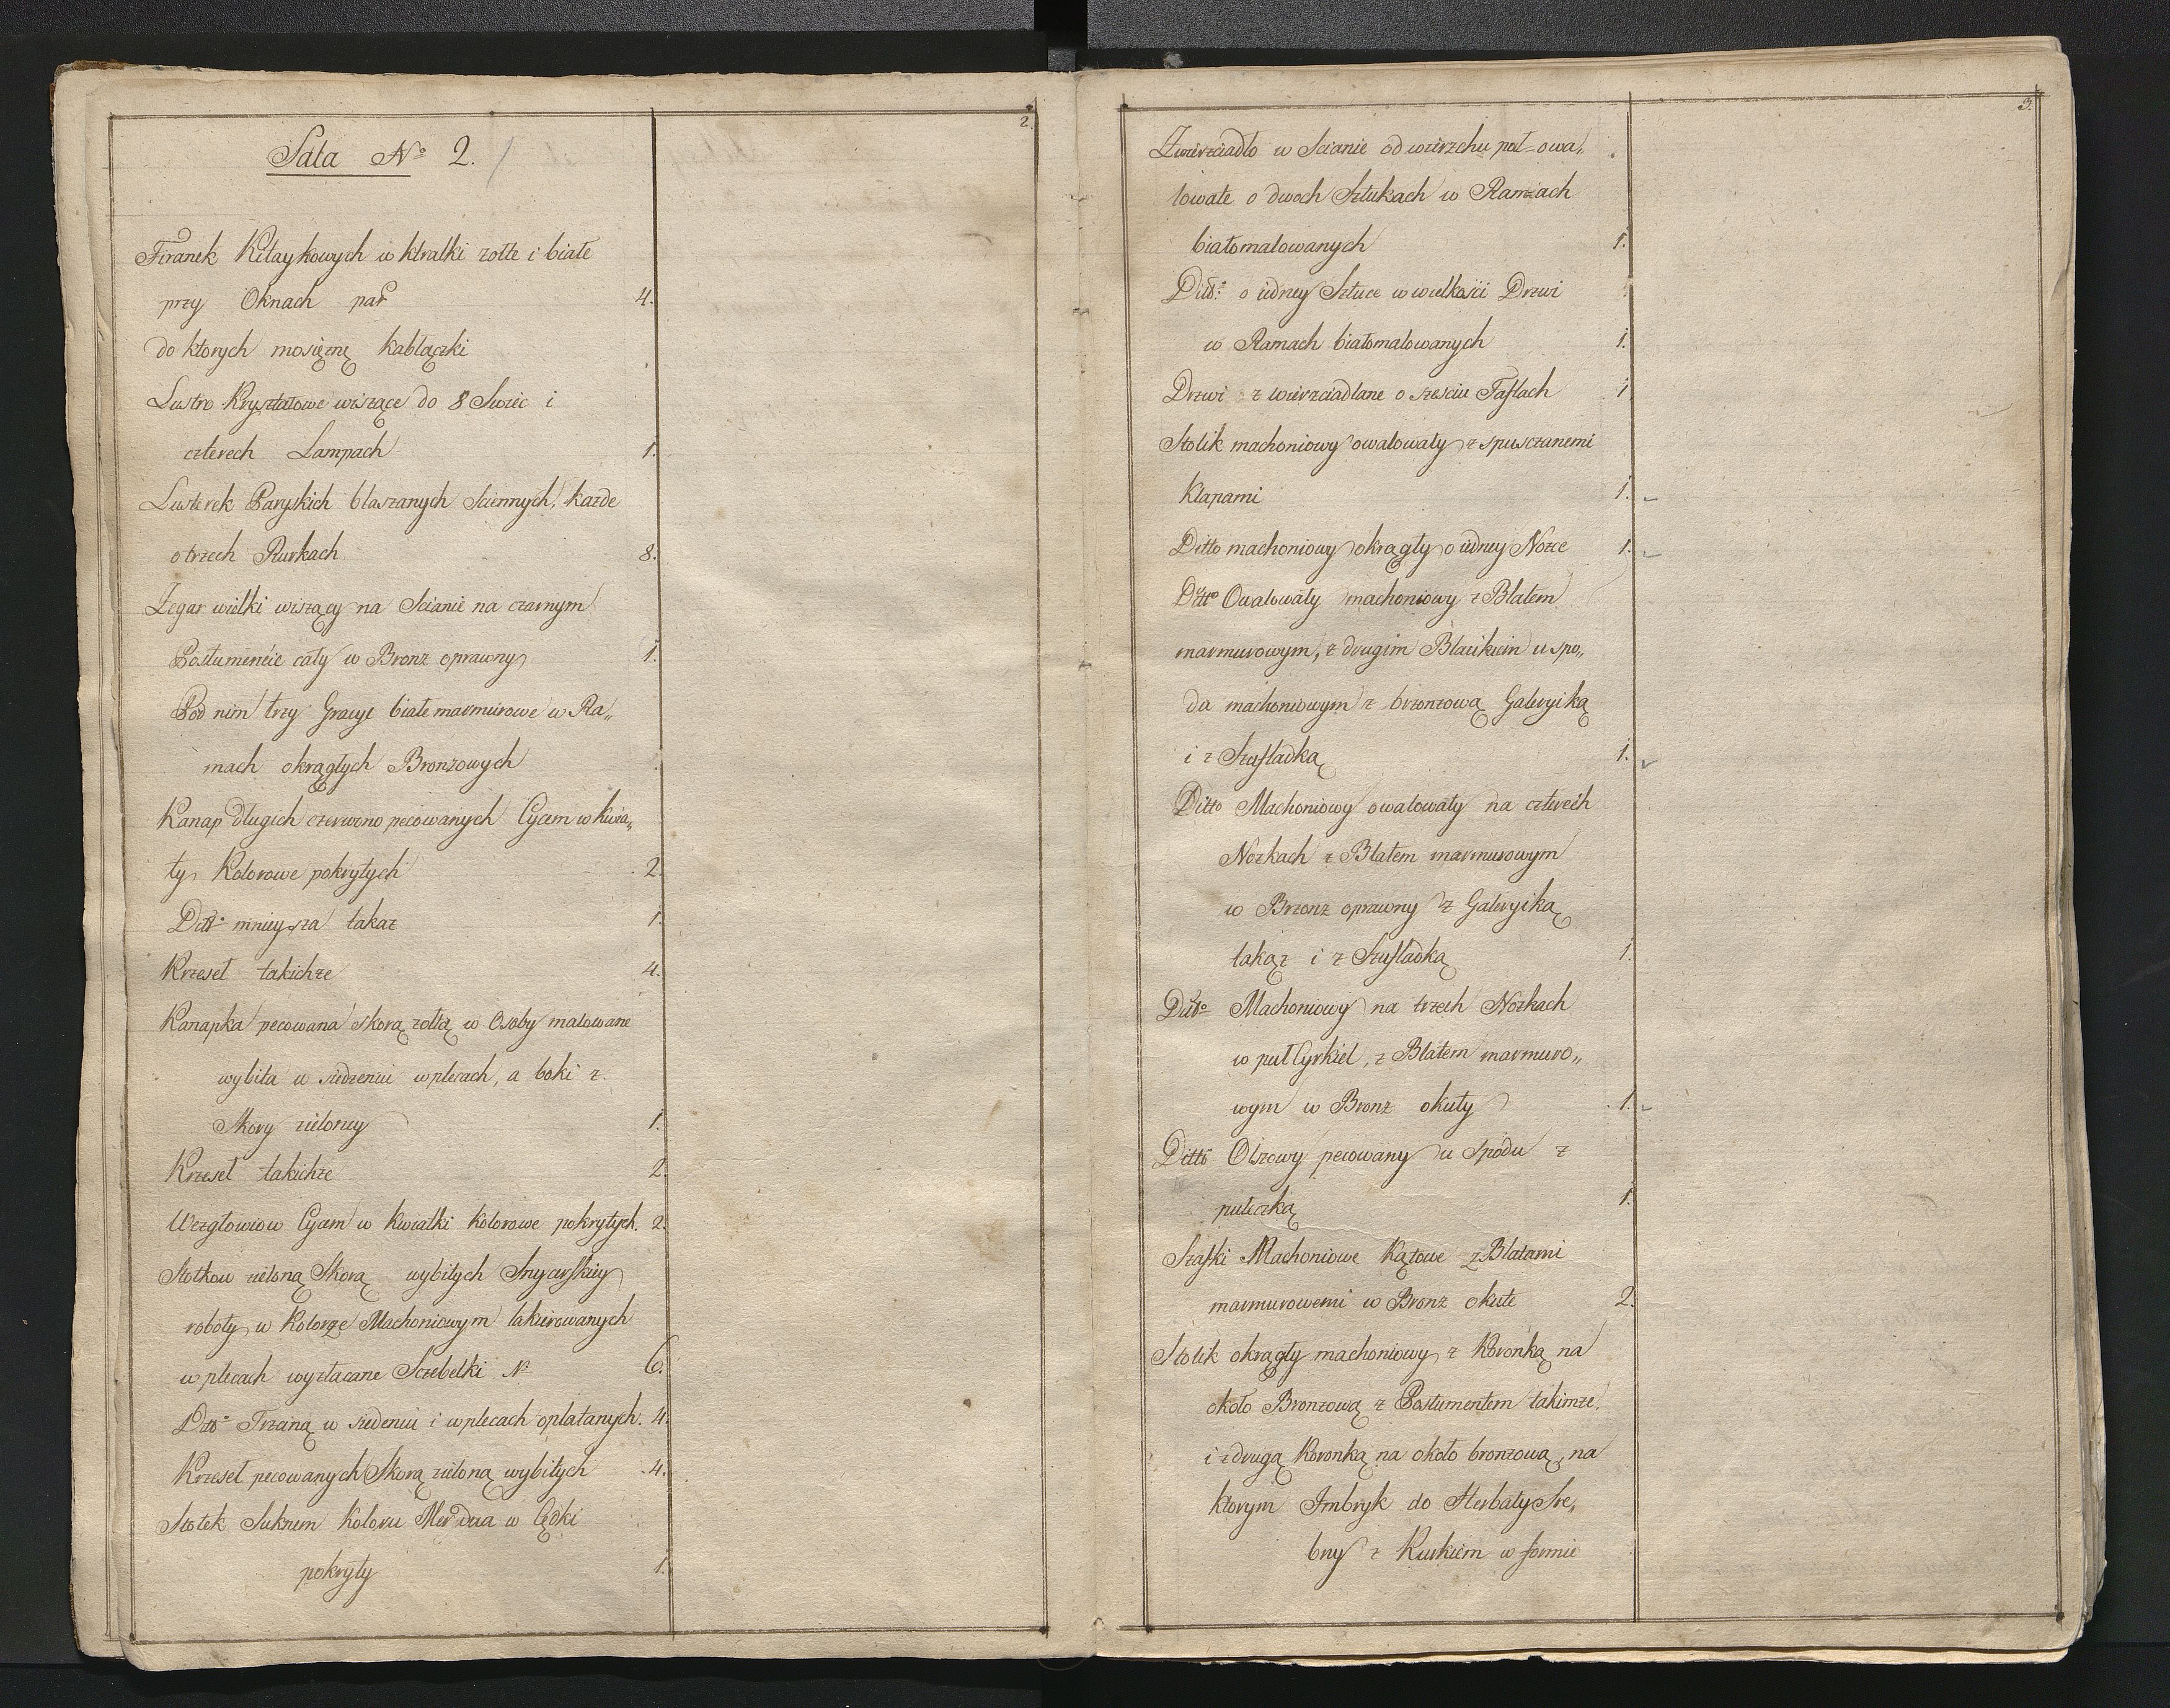 2.
Sala No 2.
Firanek Kitaykowych w kratki zołte i białe
przy Oknach par 4.
do ktorych mosięznę kabłączki
Lustro Kryształowe wiszące do 8 Swiec i
czterech Lampach 1.
Lusterek Paryskich blaszanych Sciennych, kazde
o trzech Rurkach 8.
Zegar wielki wiszący na Scianie na czarnym
Postumencie cały w Bronz oprawny 1.
Pod nim trzy Gracye białe marmurowe w Ra„
mach okrągłych Bronzowych
Kanap Długich czerwono pecowanych Cycem w kwia„
ty Kolorowe pokrytych 2.
Ditto mnieysza takaz 1.
Krzeseł takichze 4.
Kanapka pecowana skorą zołtą w Osoby malowane
wybita w siedzeniu w plecach, a boki z
Skory zieloney 1.
Krzeseł takichze 2.
Wezgłowiow Cycem w kwiatki kolorowe pokrytych. 2.
Stołkow zieloną Skorą wybitych Snycerskiey
roboty w Kolorze Machoniowym lakierowanych
w plecach wyzłacane Sczebelki No 6.
Ditto Trzciną w siedeniu i w plecach oplatanych. 4.
Krzeseł pecowanych Skorą zieloną wybitych 4.
Stołek Suknem Koloru w Cędki
pokryty 1.
3.
Zwierzciadło w Scianie od wierzchu puł-owa„
lowate o dwoch Sztukach w Ramiach
białomalowanych 1.
Ditto o iedney Sztuce w wielkości Drzwi
w Ramach białomalowanych 1.
Drzwi zwierzciadlane o szesciu Taflach 1
Stolik machoniowy owalowaty z spusczanemi
Klapami 1.
Ditto machoniowy okrągły o iedney Nozce 1.
Ditto Owalowaty machoniowy z Blatem
marmurowym, z drugim Blacikiem u spo„
du machoniowym z brzonzową Galeryiką
i z Szufladką 1.
Ditto Machoniowy owalowaty na czterech
Nozkach z Blatem marmurowym
w Brzonz oprawny z Galeryiką
takąz i z Szufladką 1.
Ditto Machoniowy na trzech Nozkach
w puł Cyrkiel, z Blatem marmuro„
wym w Bronz okuty 1.
Ditto Olszowy pecowany u Spodu z
puleczką 1.
Szafki Machoniowe Kątowe z Blatami
marmurowemi w Bronz okute 2.
Stolik okrągły machoniowy z Koronką na
około Bronzową z Postumentem takimze,
i z drugą Koronką na około bronzową, na
ktorym Imbryk do Herbaty Sre„
bny z Kurkiem w formie